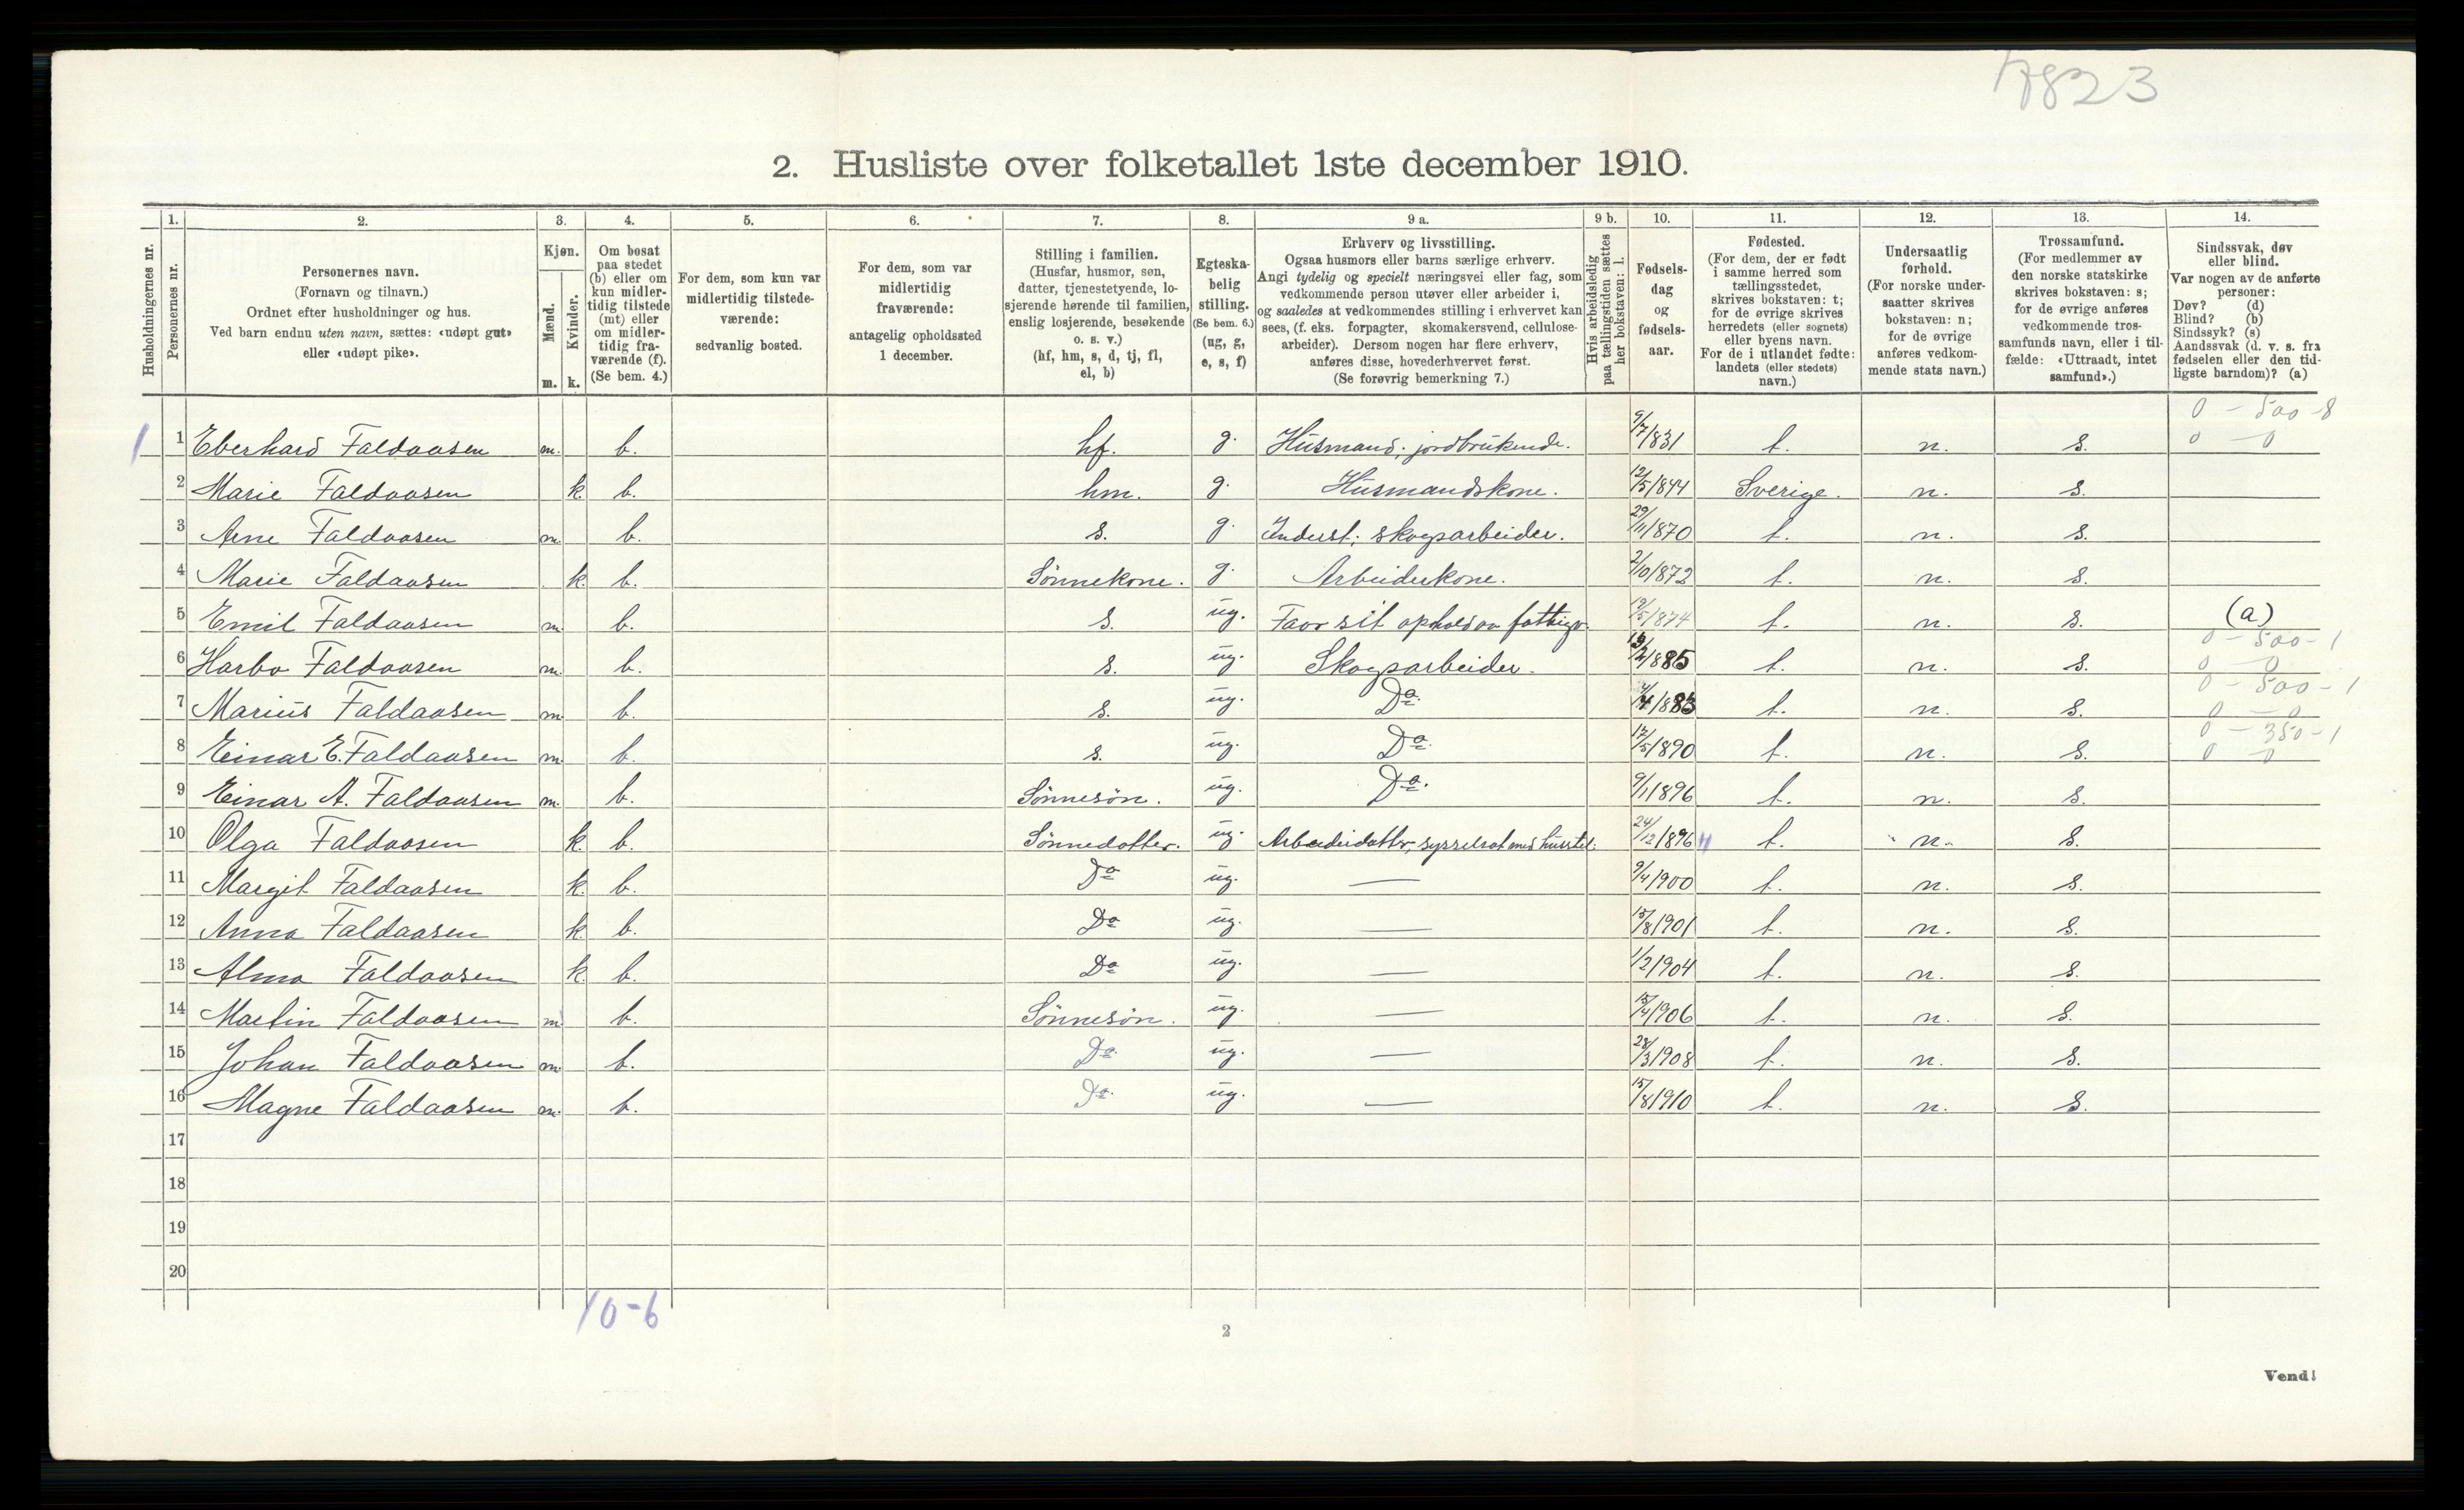 7823
2. Husliste over folketallet 1ste december 1910.
Husholdningernes nr.
1. Personernes nr.
2. Personernes navn. (Fornavn og tilnavn.) Ordnet efter husholdninger og hus. Ved barn endnu uten navn, sættes: «udøpt gut» eller «udøpt pike».
3. Kjøn. Mænd. m. Kvinder. k.
4. Om bosat paa stedet (b) eller om kun midlertidig tilstede (mt) eller om midlertidig fraværende (f). (Se bem. 4.)
5. For dem, som kun var midlertidig tilstedeværende: sedvanlig bosted.
6. For dem, som var midlertidig fraværende: antagelig opholdssted 1 december.
7. Stilling i familien. (Husfar, husmor, søn, datter, tjenestetyende, losjerende hørende til familien, enslig losjerende, besøkende o. s. v.) (hf, hm, s, d, tj, fl, el, b)
8. Egteskabelig stilling. (Se bem. 6.) (ug, g, e, s, f)
9 a. Erhverv og livsstilling. Ogsaa husmors eller barns særlige erhverv. Angi tydelig og specielt næringsvei eller fag, som vedkommende person utøver eller arbeider i, og saaledes at vedkommendes stilling i erhvervet kan sees, (f. eks. forpagter, skomakersvend, cellulosearbeider). Dersom nogen har flere erhverv, anføres disse, hovederhvervet først. (Se forøvrig bemerkning 7.)
9 b. Hvis arbeidsledig paa tællingstiden sættes her bokstaven: l.
10. Fødselsdag og fødselsaar.
11. Fødested. (For dem, der er født i samme herred som tællingsstedet, skrives bokstaven: t; for de øvrige skrives herredets (eller sognets) eller byens navn. For de i utlandet fødte: landets (eller stedets) navn.)
12. Undersaatlig forhold. (For norske undersaatter skrives bokstaven: n; for de øvrige anføres vedkommende stats navn.)
13. Trossamfund. (For medlemmer av den norske statskirke skrives bokstaven: s; for de øvrige anføres vedkommende trossamfunds navn, eller i tilfælde: «Uttraadt, intet samfund».)
14. Sindssvak, døv eller blind. Var nogen av de anførte personer: Døv? (d) Blind? (b) Sindssyk? (s) Aandssvak (d. v. s. fra fødselen eller den tidligste barndom)? (a)
0 - 500 - 8
1 1 Eberhard Faldaasen m. b. hf. g. Husmand; jordbrukende. 9/7/831 t. n. s. 0 - 0
2 Marie Faldaasen k. b. hm. g. Husmandskone. 12/5/844 Sverige. n. s.
3 Arne Faldaasen m. b. s. g. Inderst; skogsarbeider. 29/11/870 t. n. s.
4 Marie Faldaasen k. b. Sönnekone. g. Arbeiderkone. 2/10/872 t. n. s.
5 Emil Faldaasen m. b. s. ug. Faar sit ophold av fattigv. 19/5/874 t. n. s. (a)
0 - 500 - 1
6 Harbo Faldaasen m. b. s. ug. Skogsarbeider. /2/885 t. n. s. 0 - 0
0 - 500 - 1
7 Marius Faldaasen m. b. s. ug. Do. /4/883 t. n. s. 0 - 0
0 - 350 - 1
8 Einar E. Faldaasen m. b. s. ug. Do. 17/5/890 t. n. s. 0 - 0
9 Einar A. Faldaasen m. b. Sönnesön. ug. Do. 9/1/896 t. n. s.
10 Olga Faldaasen k. b. Sönnedatter. ug. Arbeiderdatter, sysselsat med husstel. 24/12/896 t. n. s.
11 Margit Faldaasen k. b. Do ug. — 9/4/900 t. n. s.
12 Anna Faldaasen k. b. Do ug. — 15/8/901 t. n. s.
13 Alma Faldaasen k. b. Do ug. — 1/2/904 t. n. s.
14 Martin Faldaasen m b. Sönnesön. ug. — 15/4/906 t. n. s.
15 Johan Faldaasen m. b. Do. ug. — 28/3/908 t. n. s.
16 Magne Faldaasen m. b. Do. ug. — 15/8/910 t. n. s.
17
18
19
20
10-6
2
Vend!